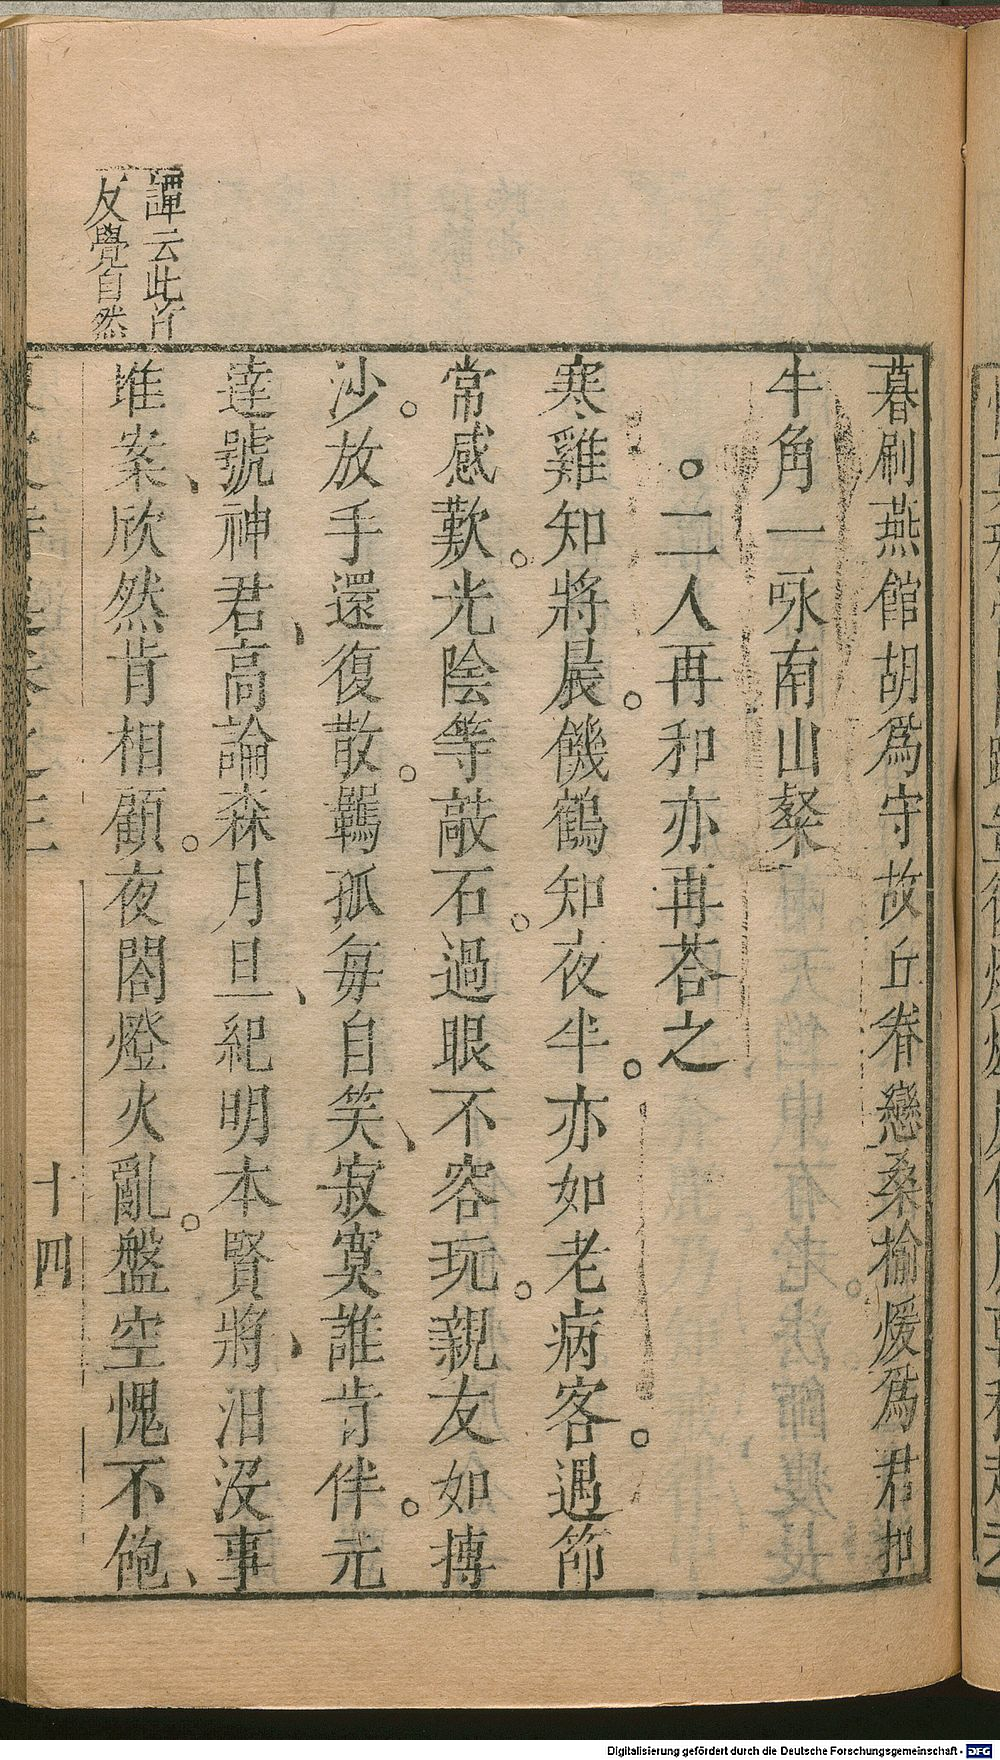 暮刷燕館胡爲守故丘眷戀桑榆煖爲君扣
牛角一咏南山粲
二人再和亦再荅之
寒雞知將晨饑鶴知夜半亦如老病客遇節
常感歎光陰等敲石過眼不容玩親友如摶
沙放手還復散羈孤每自笑寂寞誰肯伴元
達號神君高論森月旦紀明本賢將汨沒事
堆案欣然肯相顧夜閤燈火亂盤空愧不飽
譚云此等
反覺自然
十四
Digitalisierung gefördert durch die Deutsche Forschungsgemeinschaft - DFG